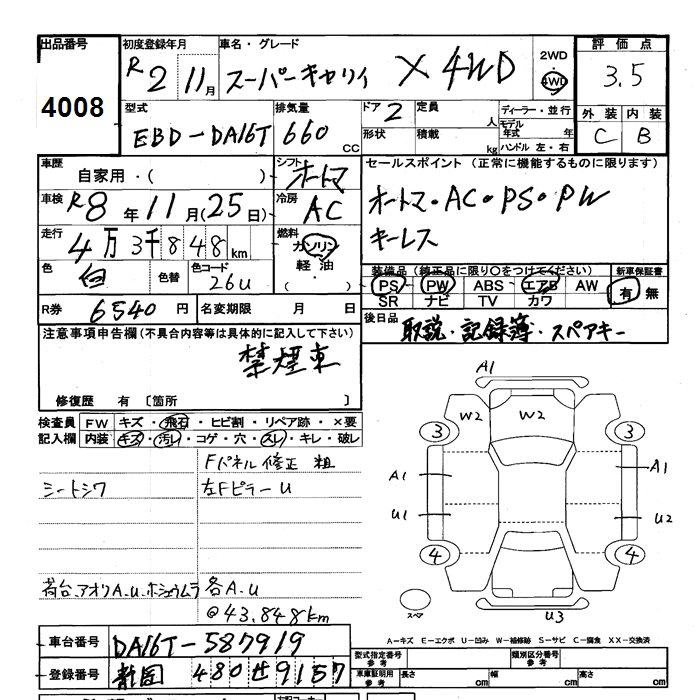 出品番号 初度登録年月 車名・グレード 2WD 評価点
4008 R2 11月 スーパーキャリイ X 4WD 4WD 3.5
型式 排気量 ドア 2 定員 人 ディーラー・並行 外装 内装
EBD-DA16T 660 cc 形状 積載 kg モデル年式 年 C B
ハンドル 左・右
車歴 自家用・( ) シフト オートマ セールスポイント (正常に機能するものに限ります)
車検 R8年11月(25日) 冷房 AC オートマ・AC・PS・PW
走行 4万3千848km 燃料 ガソリン キーレス
色 白 色替 色コード 26U 軽油 ( ・ ) 装備品 (純正品に限り○をつけてください) 新車保証書
PS PW ABS エアB AW 有 無
R券 6540円 名変期限 月 日 SR ナビ TV カワ
注意事項申告欄(不具合内容等は具体的に記入して下さい) 後日品 取説・記録簿・スペアキー
禁煙車
修復歴 有 〔箇所 〕
検査員 FW キズ・飛石・ヒビ割・リペア跡・×要
記入欄 内装 キズ・汚レ・コゲ・穴・スレ・キレ・破レ
Fパネル修正 粗
シートシワ 左FピラーU
荷台、アオリA.U.ホシュウムラ 各A.U
@43,848km
A1
W2 W2
3 3
A1 A1
U1 U2
4 4
スペア U3
A-キズ E-エクボ U-凹み W-補修跡 S-サビ C-腐食 XX-交換済
車台番号 DA16T-587919 型式指定番号 参考 類別区分番号 参考
登録番号 静岡 480 せ 9157 車庫証明用 参考 長さ cm 幅 cm 高さ cm